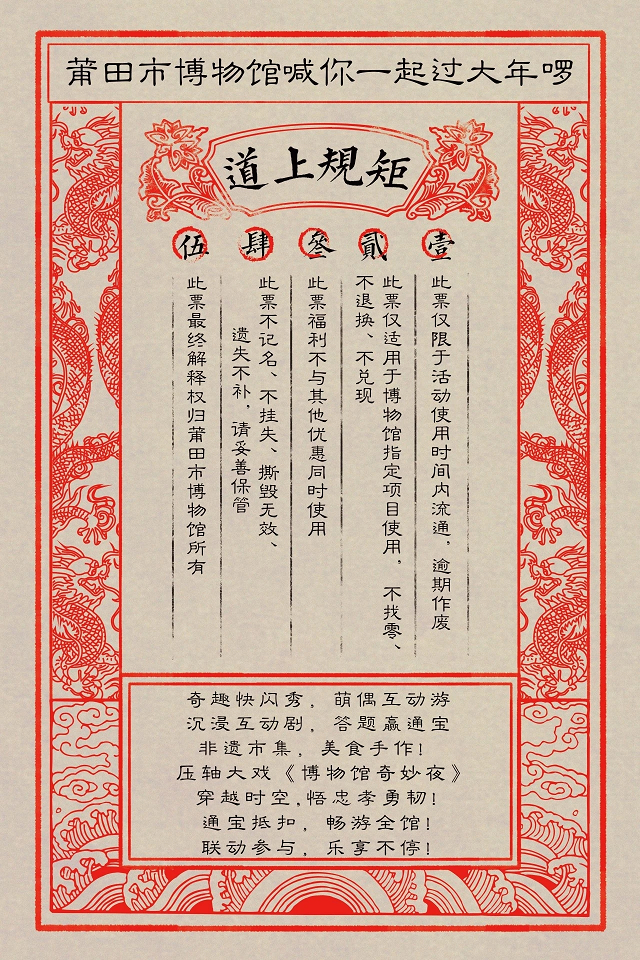 莆田市博物馆喊你一起过大年啰
道上規矩
壹
此票仅限于活动使用时间内流通，逾期作废
贰
此票仅适用于博物馆指定项目使用，不找零、
不退换、不兑现
叁
此票福利不与其他优惠同时使用
肆
此票不记名、不挂失、撕毁无效、
遗失不补，请妥善保管
伍
此票最终解释权归莆田市博物馆所有
奇趣快闪秀，萌偶互动游
沉浸互动剧，答题赢通宝
非遗市集，美食手作！
压轴大戏《博物馆奇妙夜》
穿越时空，悟忠孝勇韧！
通宝抵扣，畅游全馆！
联动参与，乐享不停！